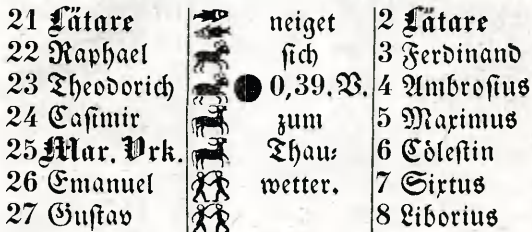 21 Lätare neiget 2 Lätare
22 Raphael ſich 3 Ferdinand
23 Theodorich 0,39.V. 4 Ambroſius
24 Caſimir zum 5 Maximus
25 Mar. Vrk. Thau⸗ 6 Cöleſtin
26 Emanuel wetter. 7 Sixtus
27 Guſtav 8 Liborius